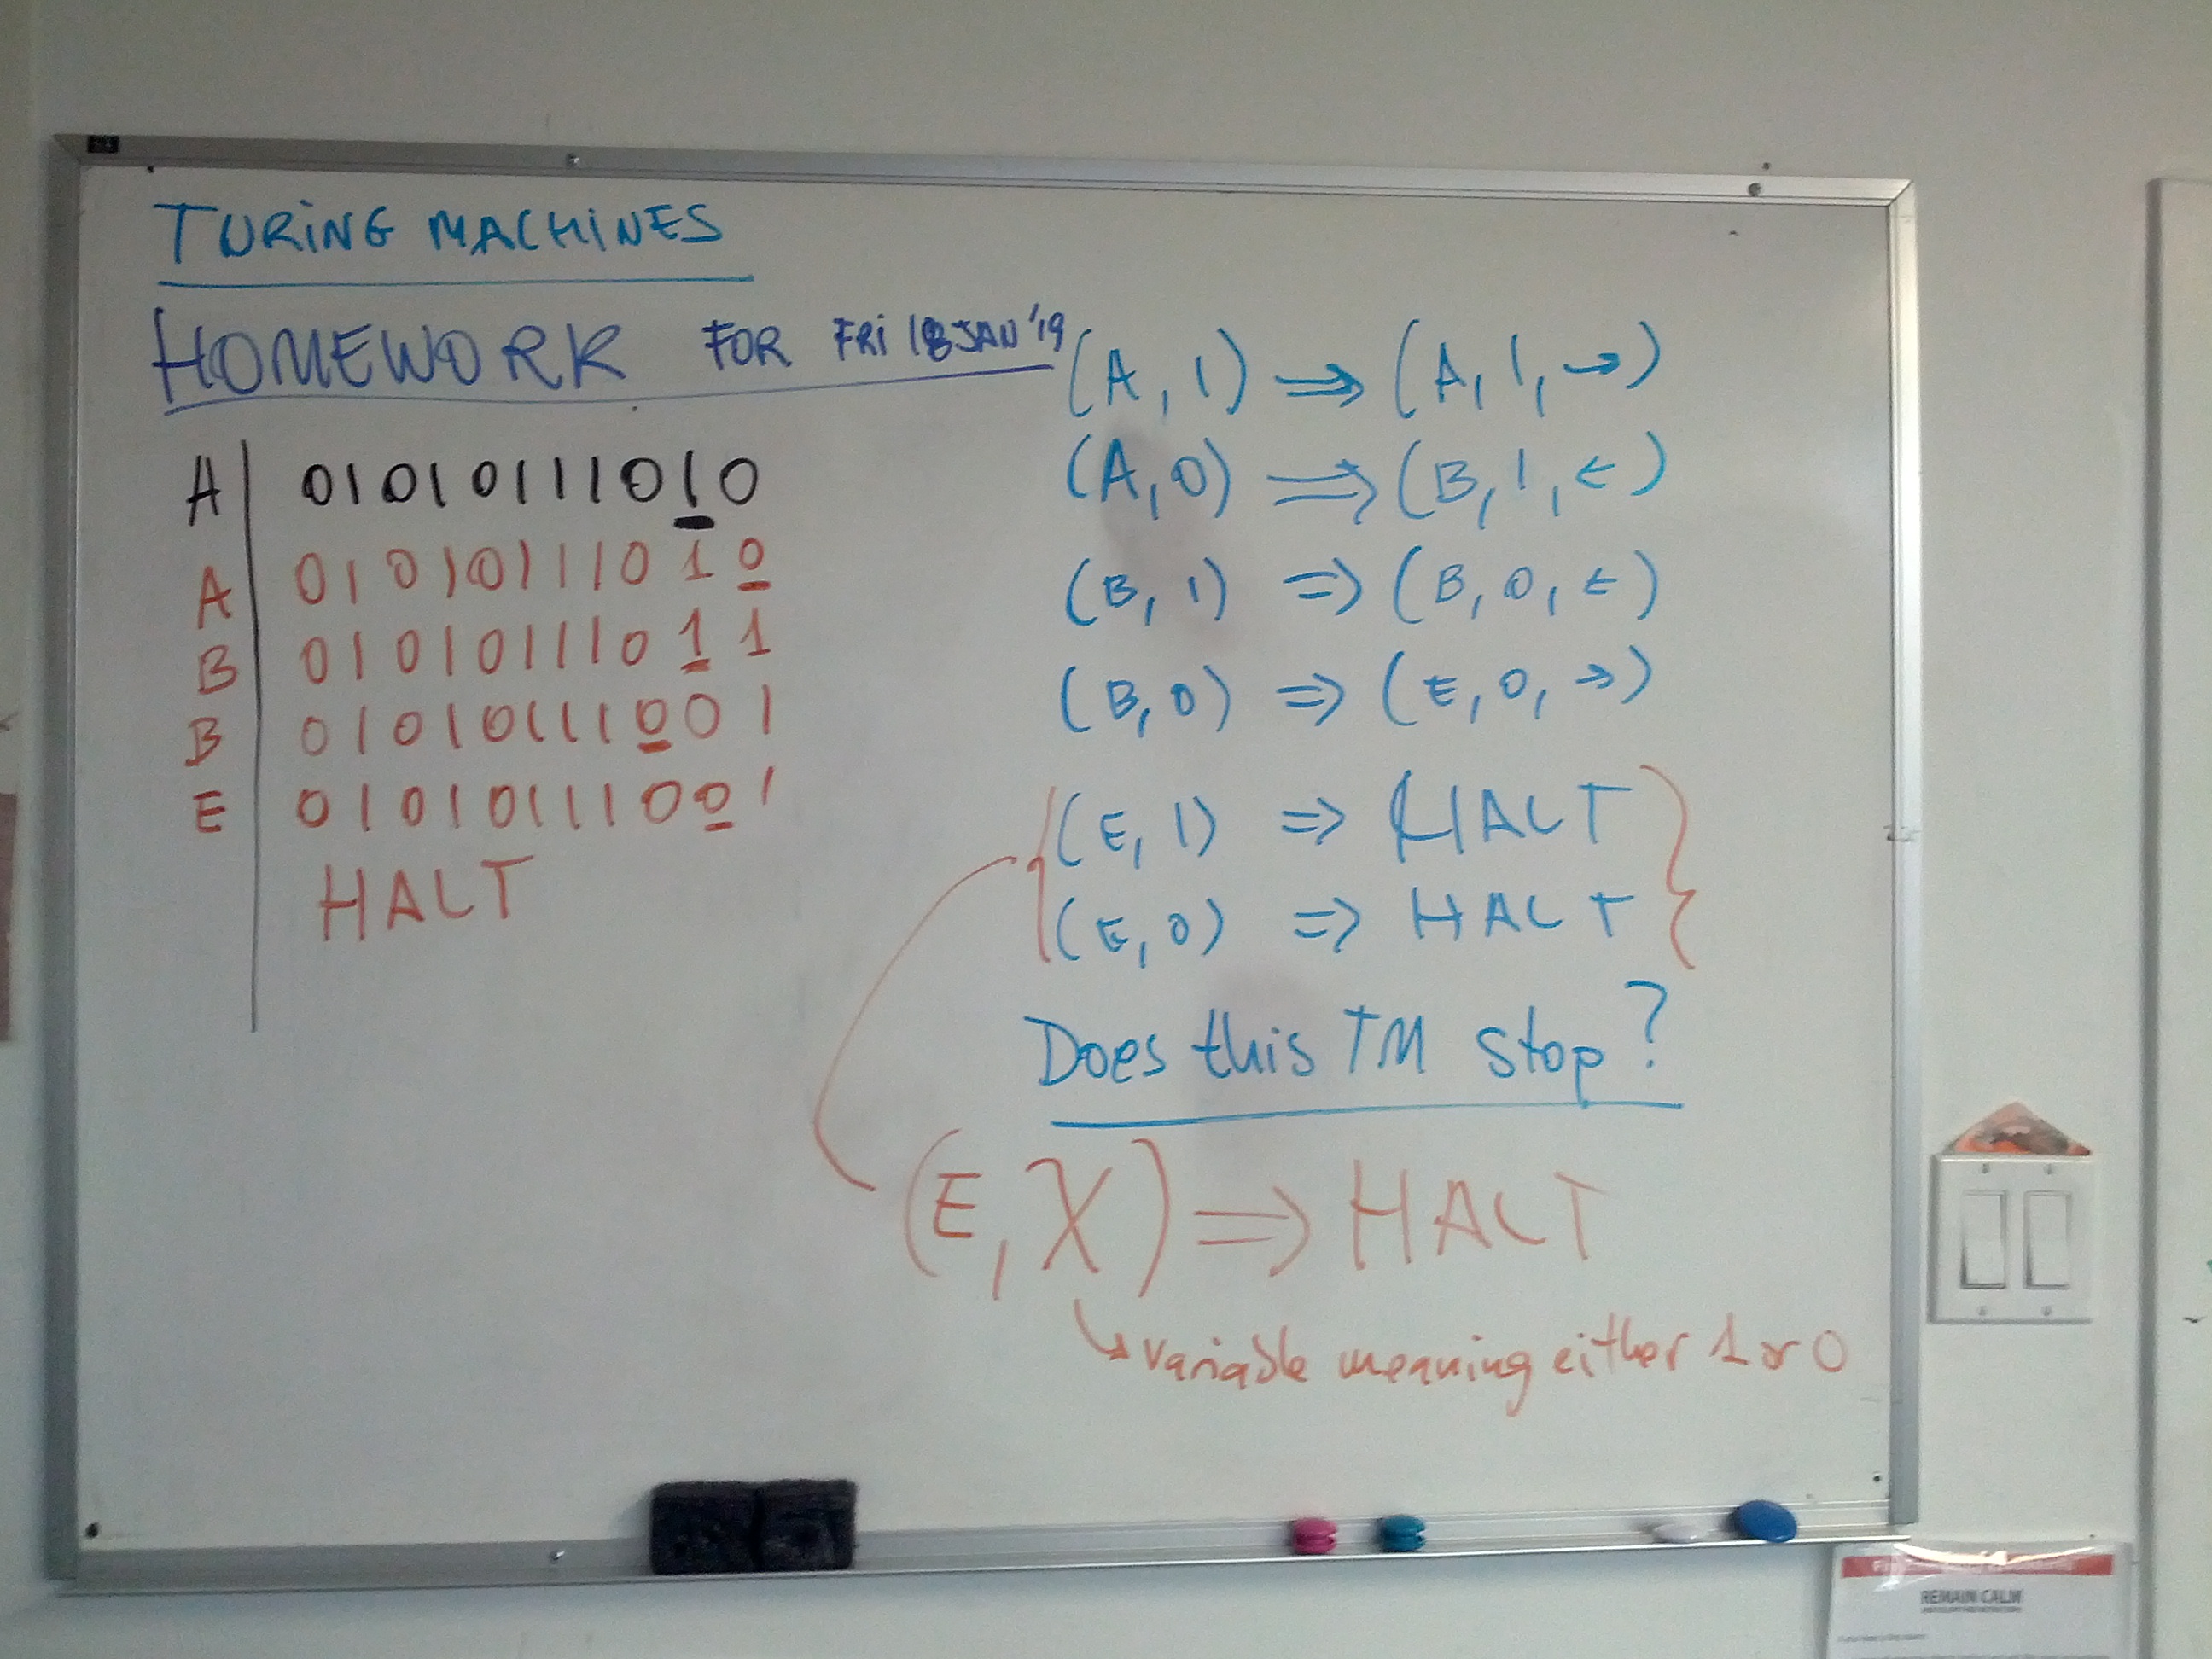 TURING MACHINES
HOMEWORK FOR FRI 18 JAN '19
A | 01010111010
A | 01010111010
B | 01010111011
B | 01010111001
E | 01010111001
HALT
(A, 1) ⇒ (A, 1, →)
(A, 0) ⇒ (B, 1, ←)
(B, 1) ⇒ (B, 0, ←)
(B, 0) ⇒ (E, 0, →)
(E, 1) ⇒ HALT
(E, 0) ⇒ HALT
Does this TM stop?
(E, X) ⇒ HALT
↳ variable meaning either 1 or 0
REMAIN CALM